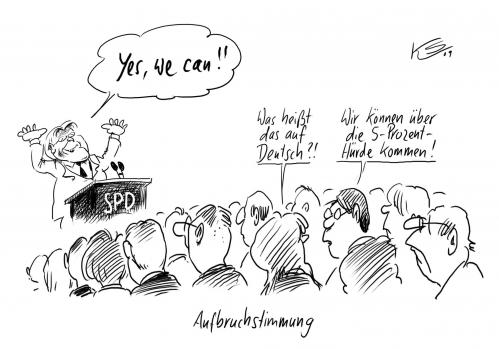 Yes, we can!!
Was heißt
das auf
Deutsch?!
Wir können über
die 5-Prozent-
Hürde kommen!
SPD
Aufbruchstimmung